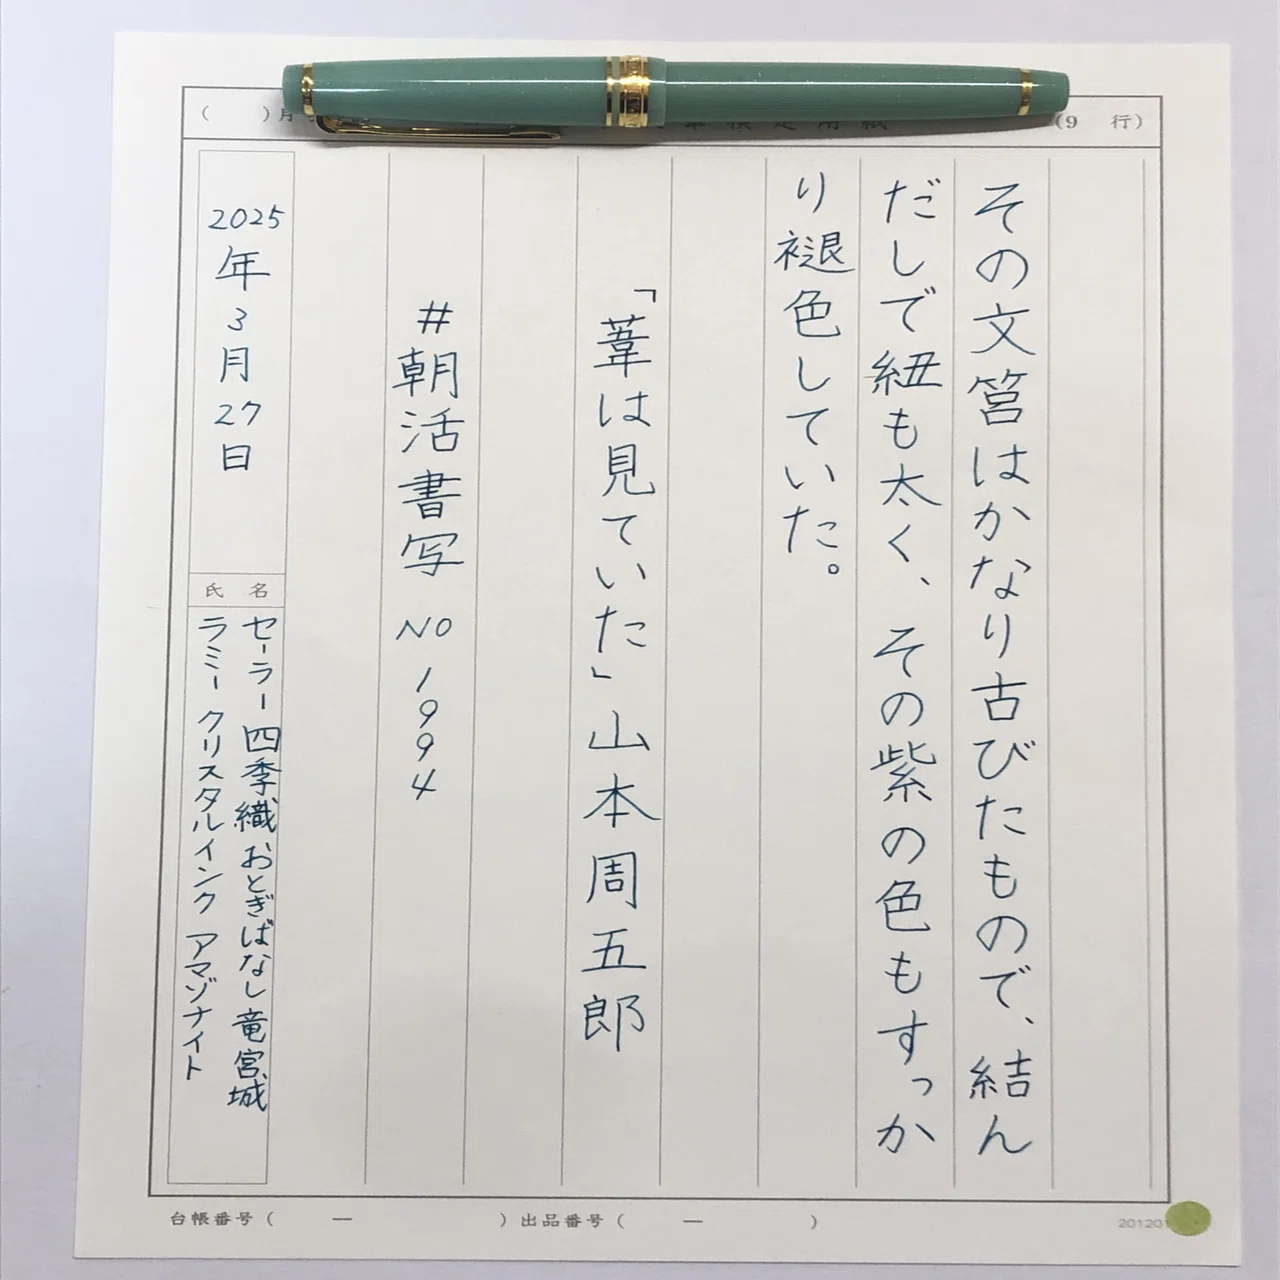 ( )月
(9 行)
その文筥はかなり古びたもので、結ん
だしで紐も太く、その紫の色もすっか
り褪色していた。
「葦は見ていた」山本周五郎
#朝活書写 NO 1994
2025年3月27日
氏名
セーラー四季織 おとぎばなし 竜宮城
ラミー クリスタルインク アマゾナイト
台帳番号( ー ) 出品番号( ー )